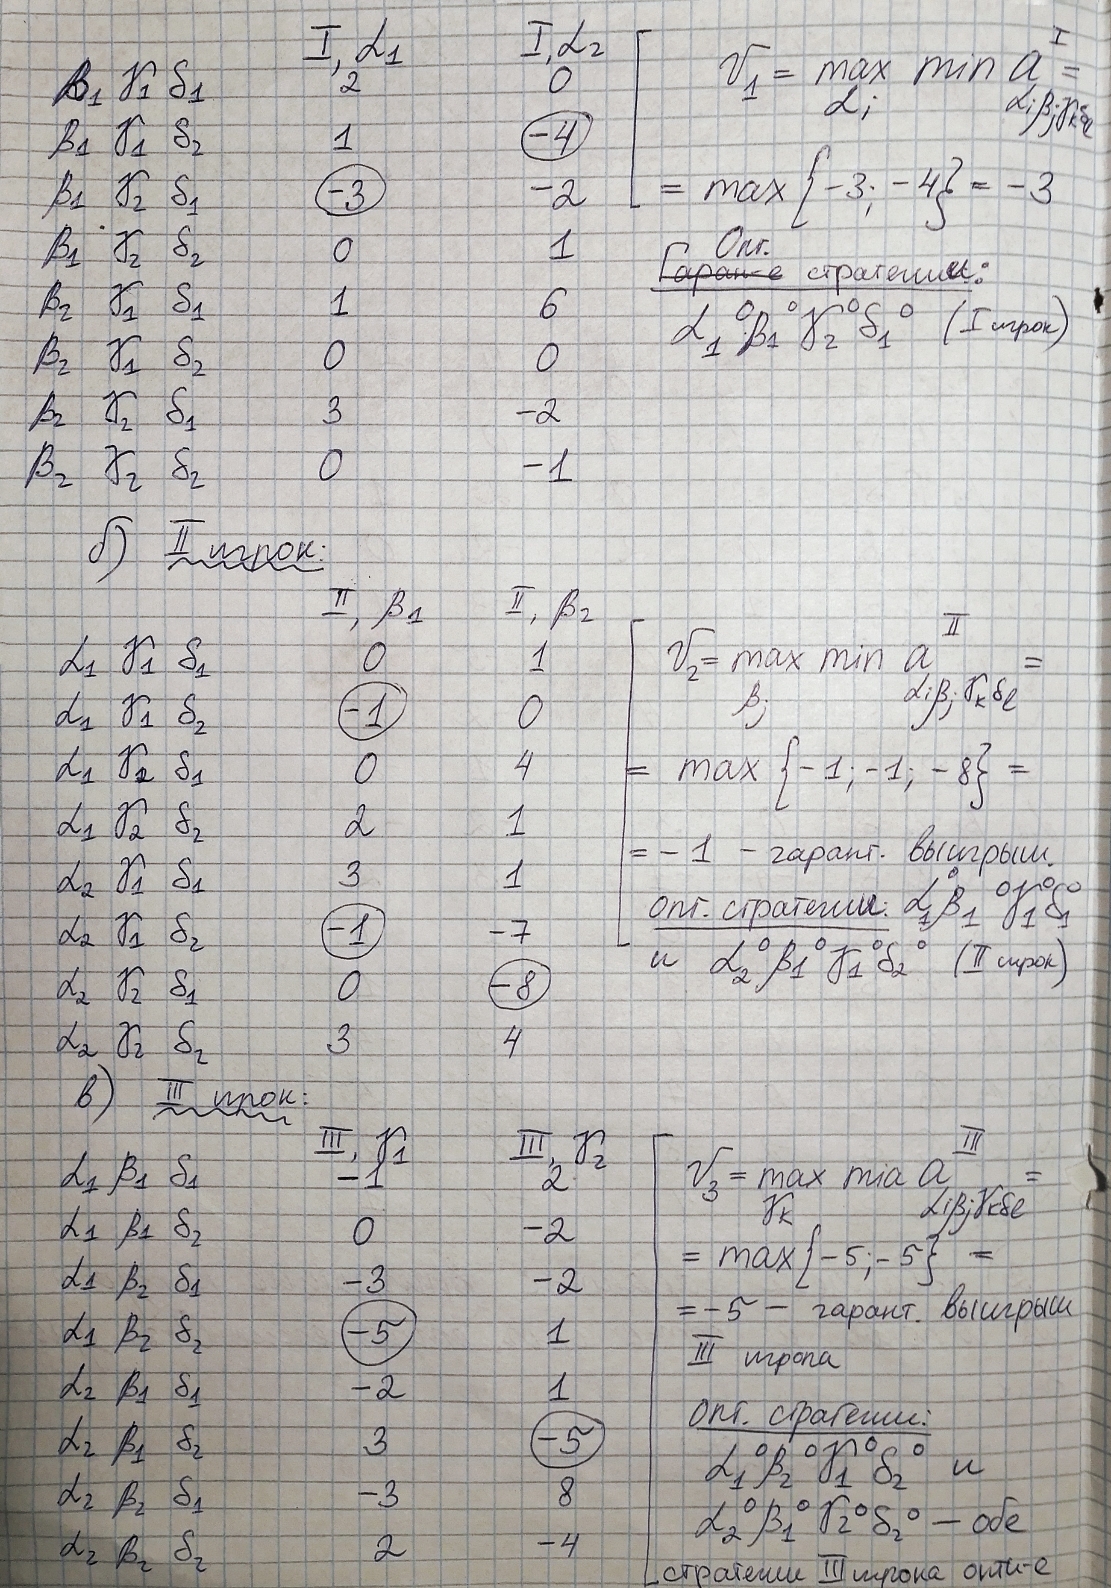 I, α₁ I, α₂
β₁ γ₁ δ₁ 2 0
β₁ γ₁ δ₂ 1 -4
β₁ γ₂ δ₁ -3 -2
β₁ γ₂ δ₂ 0 1
β₂ γ₁ δ₁ 1 6
β₂ γ₁ δ₂ 0 0
β₂ γ₂ δ₁ 3 -2
β₂ γ₂ δ₂ 0 -1
V₁ = max min a^I =
αᵢ αᵢβⱼγₖδₑ
= max {-3; -4} = -3
Опт.
Гаран-е стратегии:
α₁° β₁° γ₂° δ₁° (I игрок)
б) II игрок:
II, β₁ II, β₂
α₁ γ₁ δ₁ 0 1
α₁ γ₁ δ₂ -1 0
α₁ γ₂ δ₁ 0 4
α₁ γ₂ δ₂ 2 1
α₂ γ₁ δ₁ 3 1
α₂ γ₁ δ₂ -1 -7
α₂ γ₂ δ₁ 0 -8
α₂ γ₂ δ₂ 3 4
V₂ = max min a^II =
βⱼ αᵢβⱼγₖδₑ
= max {-1; -1; -8} =
= -1 - гарант. выигрыш.
опт. стратегии: α₁° β₁° γ₁° δ₁°
и α₂° β₁° γ₁° δ₂° (II игрок)
в) III игрок:
III, γ₁ III, γ₂
α₁ β₁ δ₁ -1 2
α₁ β₁ δ₂ 0 -2
α₁ β₂ δ₁ -3 -2
α₁ β₂ δ₂ -5 1
α₂ β₁ δ₁ -2 1
α₂ β₁ δ₂ 3 -5
α₂ β₂ δ₁ -3 8
α₂ β₂ δ₂ 2 -4
V₃ = max min a^III =
γₖ αᵢβⱼγₖδₑ
= max {-5; -5} =
= -5 - гарант. выигрыш
III игрока
опт. стратегии:
α₁° β₂° γ₁° δ₂° и
α₂° β₁° γ₂° δ₂° - обе
стратегии III игрока опти-е